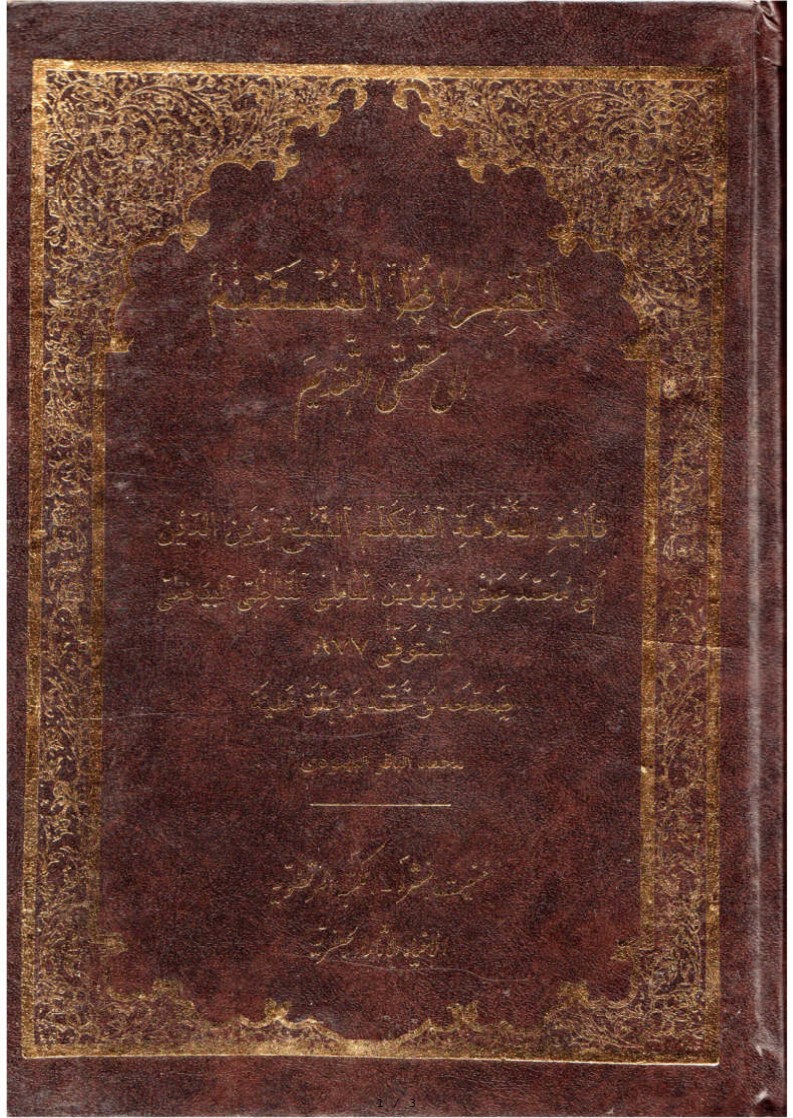 الصِّراطُ المُسْتَقِيمُ
إلى مُسْتَحِقّي التَّقْدِيمِ
تأليف العَلّامَةِ المُتَكَلِّمِ الشَّيْخِ زين الدين
أبي مُحَمَّد عَلي بن يُونُس العاملي النَّباطِي البَيَاضِي
المُتَوفّى ٨٧٧
صححه و حققه و علق عليه
محمد الباقر البهبودي
عنيت بنشره
لإحياء الآثار الجعفرية
1 / 3